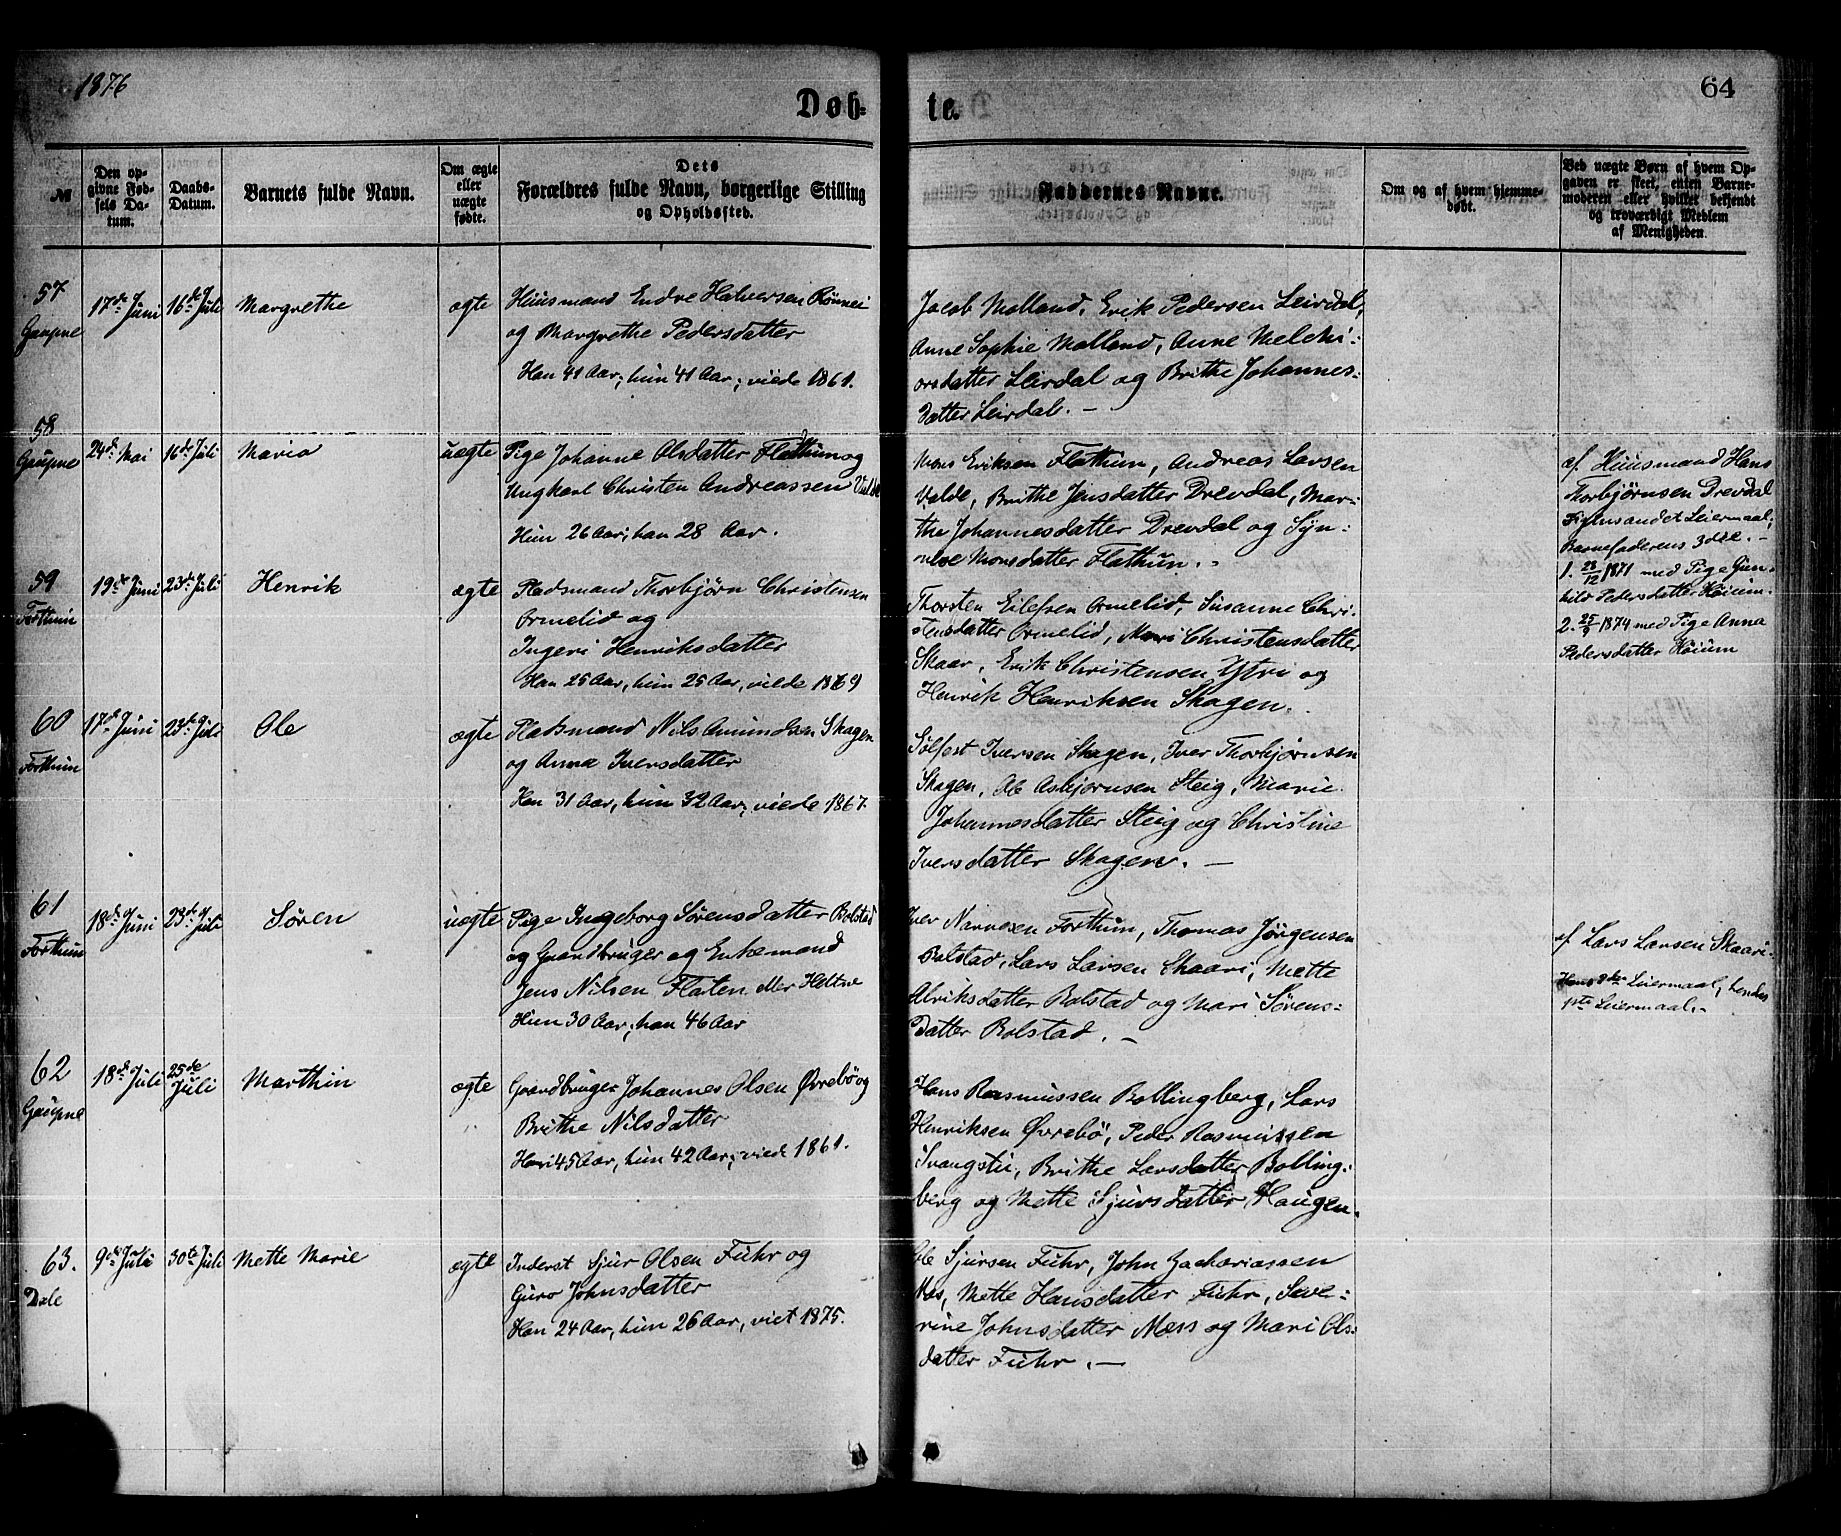 1876
Døb-
te.
64
№
Den op-
givne Fød-
sels Da-
tum.
Daabs-
Datum.
Barnets fulde Navn.
Om ægte
eller
uægte
fødte.
Dets
Forældres fulde Navn, borgerlige Stilling
og Opholdssted.
Faddernes Navne.
Om og af hvem hjemme-
døbt.
Ved uægte Børn af hvem Op-
gaven er skeet, enten Barne-
moderen eller hvilket bekjendt
og troværdigt Medlem
af Menigheden.
57
Gaupne
17de Juni
16de Juli
Margrethe
ægte
Huusmand Endre Halvorsen Rønnei
og Margrethe Pedersdatter
Han 41 Aar, hun 41 Aar; viede 1861.
Jacob Molland, Erik Pedersen Leirdal,
Anne Sophie Molland, Anne Melchi-
orsdatter Leirdal og Brithe Johannes-
datter Leirdal. -
58
Gaupne
24de Mai
16de Juli
Maria
uægte
Pige Johanne Olsdatter Flathun og
Ungkarl Christen Andreassen Valde
Hun 26 Aar, han 28 Aar.
Mons Eriksen Flathun, Andreas Larsen
Valde, Brithe Jensdatter Drevdal, Mar-
the Johannesdatter Drevdal og Syn-
neve Monsdatter Flathun. -
af Huusmand Hans
Thorbjørnsen Drevdal
Leiermaal;
Barnefaderens 3die. -
1. 23/12 1871 med Pige Gun-
hild Pedersdatter Høium.
2. 25/9 1874 med Pige Anna
Pedersdatter Høium
59
Forthun
19de Juni
23de Juli
Henrik
ægte
Pladsmand Thorbjörn Christensen
Ormelid og
Ingeri Henriksdatter
Han 25 Aar, hun 25 Aar, viede 1869
Thorsten Eilefsen Ormelid, Susanne Chri-
stensdatter Ormelid, Mari Christensdatter
Skaar, Erik Christensen Yttri og
Henrik Henriksen Skagen.
60
Forthun
17de Juni
23de Juli
Ole
ægte
Pladsmand Nils Amundsen Skagen
og Anna Iversdatter
Han 31 Aar, hun 32 Aar, viede 1867.
Sölfest Iversen Skagen, Iver Thorbjörnsen
Skagen, Ole Asbjørnsen Steig, Marie
Johannesdatter Steig og Christine
Iversdatter Skagen. -
61
Forthun
18de Juni
23de Juli
Sören
uægte
Pige Ingeborg Sörensdatter Bolstad
og Gaardbruger og Enkemand
Jens Nilsen Flaten
Hun 30 Aar, han 46 Aar
Iver Forthun, Thomas Jørgensen
Bolstad, Lars Larsen Skaari, Mette
Alriksdatter Bolstad og Mari Sörens-
datter Bolstad. -
af Lars Larsen Skaari.
Hans Leiermaal, hendes
1ste Leiermaal. -
62
Gaupne
18de Juli
25de
Juli
Marthin
ægte
Gaardbruger Johannes Olsen Øvrebö og
Brithe Nilsdatter
Han 45 Aar, hun 42 Aar, viede 1861.
Hans Rasmussen Bollingberg, Lars
Henriksen Øvrebö, Peder Rasmussen
Svangstu, Brithe Larsdatter Bolling-
berg og Mette Sjursdatter Haugen.
63.
Dale
9de Juli
30te Juli
Mette Marie
ægte
Inderst Sjur Olsen Fuhr og
Guro Johnsdatter
Han 24 Aar, hun 26 Aar, viet 1875.
Ole Sjursen Fuhr, John Zachariassen
Næs, Mette Hansdatter Fuhr, Seve-
rine Johnsdatter Næss og Mari Ols-
datter Fuhr. -